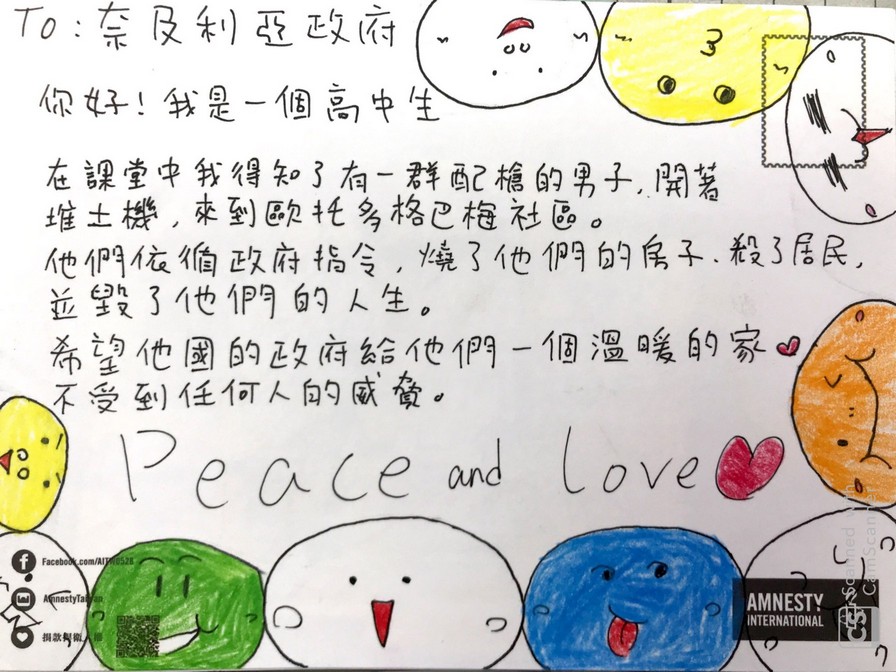 To:奈及利亞政府
你好!我是一個高中生
在課堂中我得知了有一群配槍的男子,開著
堆土機,來到歐托多格巴梅社區。
他們依循政府指令,燒了他們的房子、殺了居民,
並毀了他們的人生。
希望他國的政府給他們一個溫暖的家
不受到任何人的威脅。
Peace and love
Facebook.com/AITW0528
AmnestyTaiwan
AMNESTY
INTERNATIONAL
CS
Scanned with
CamScanner